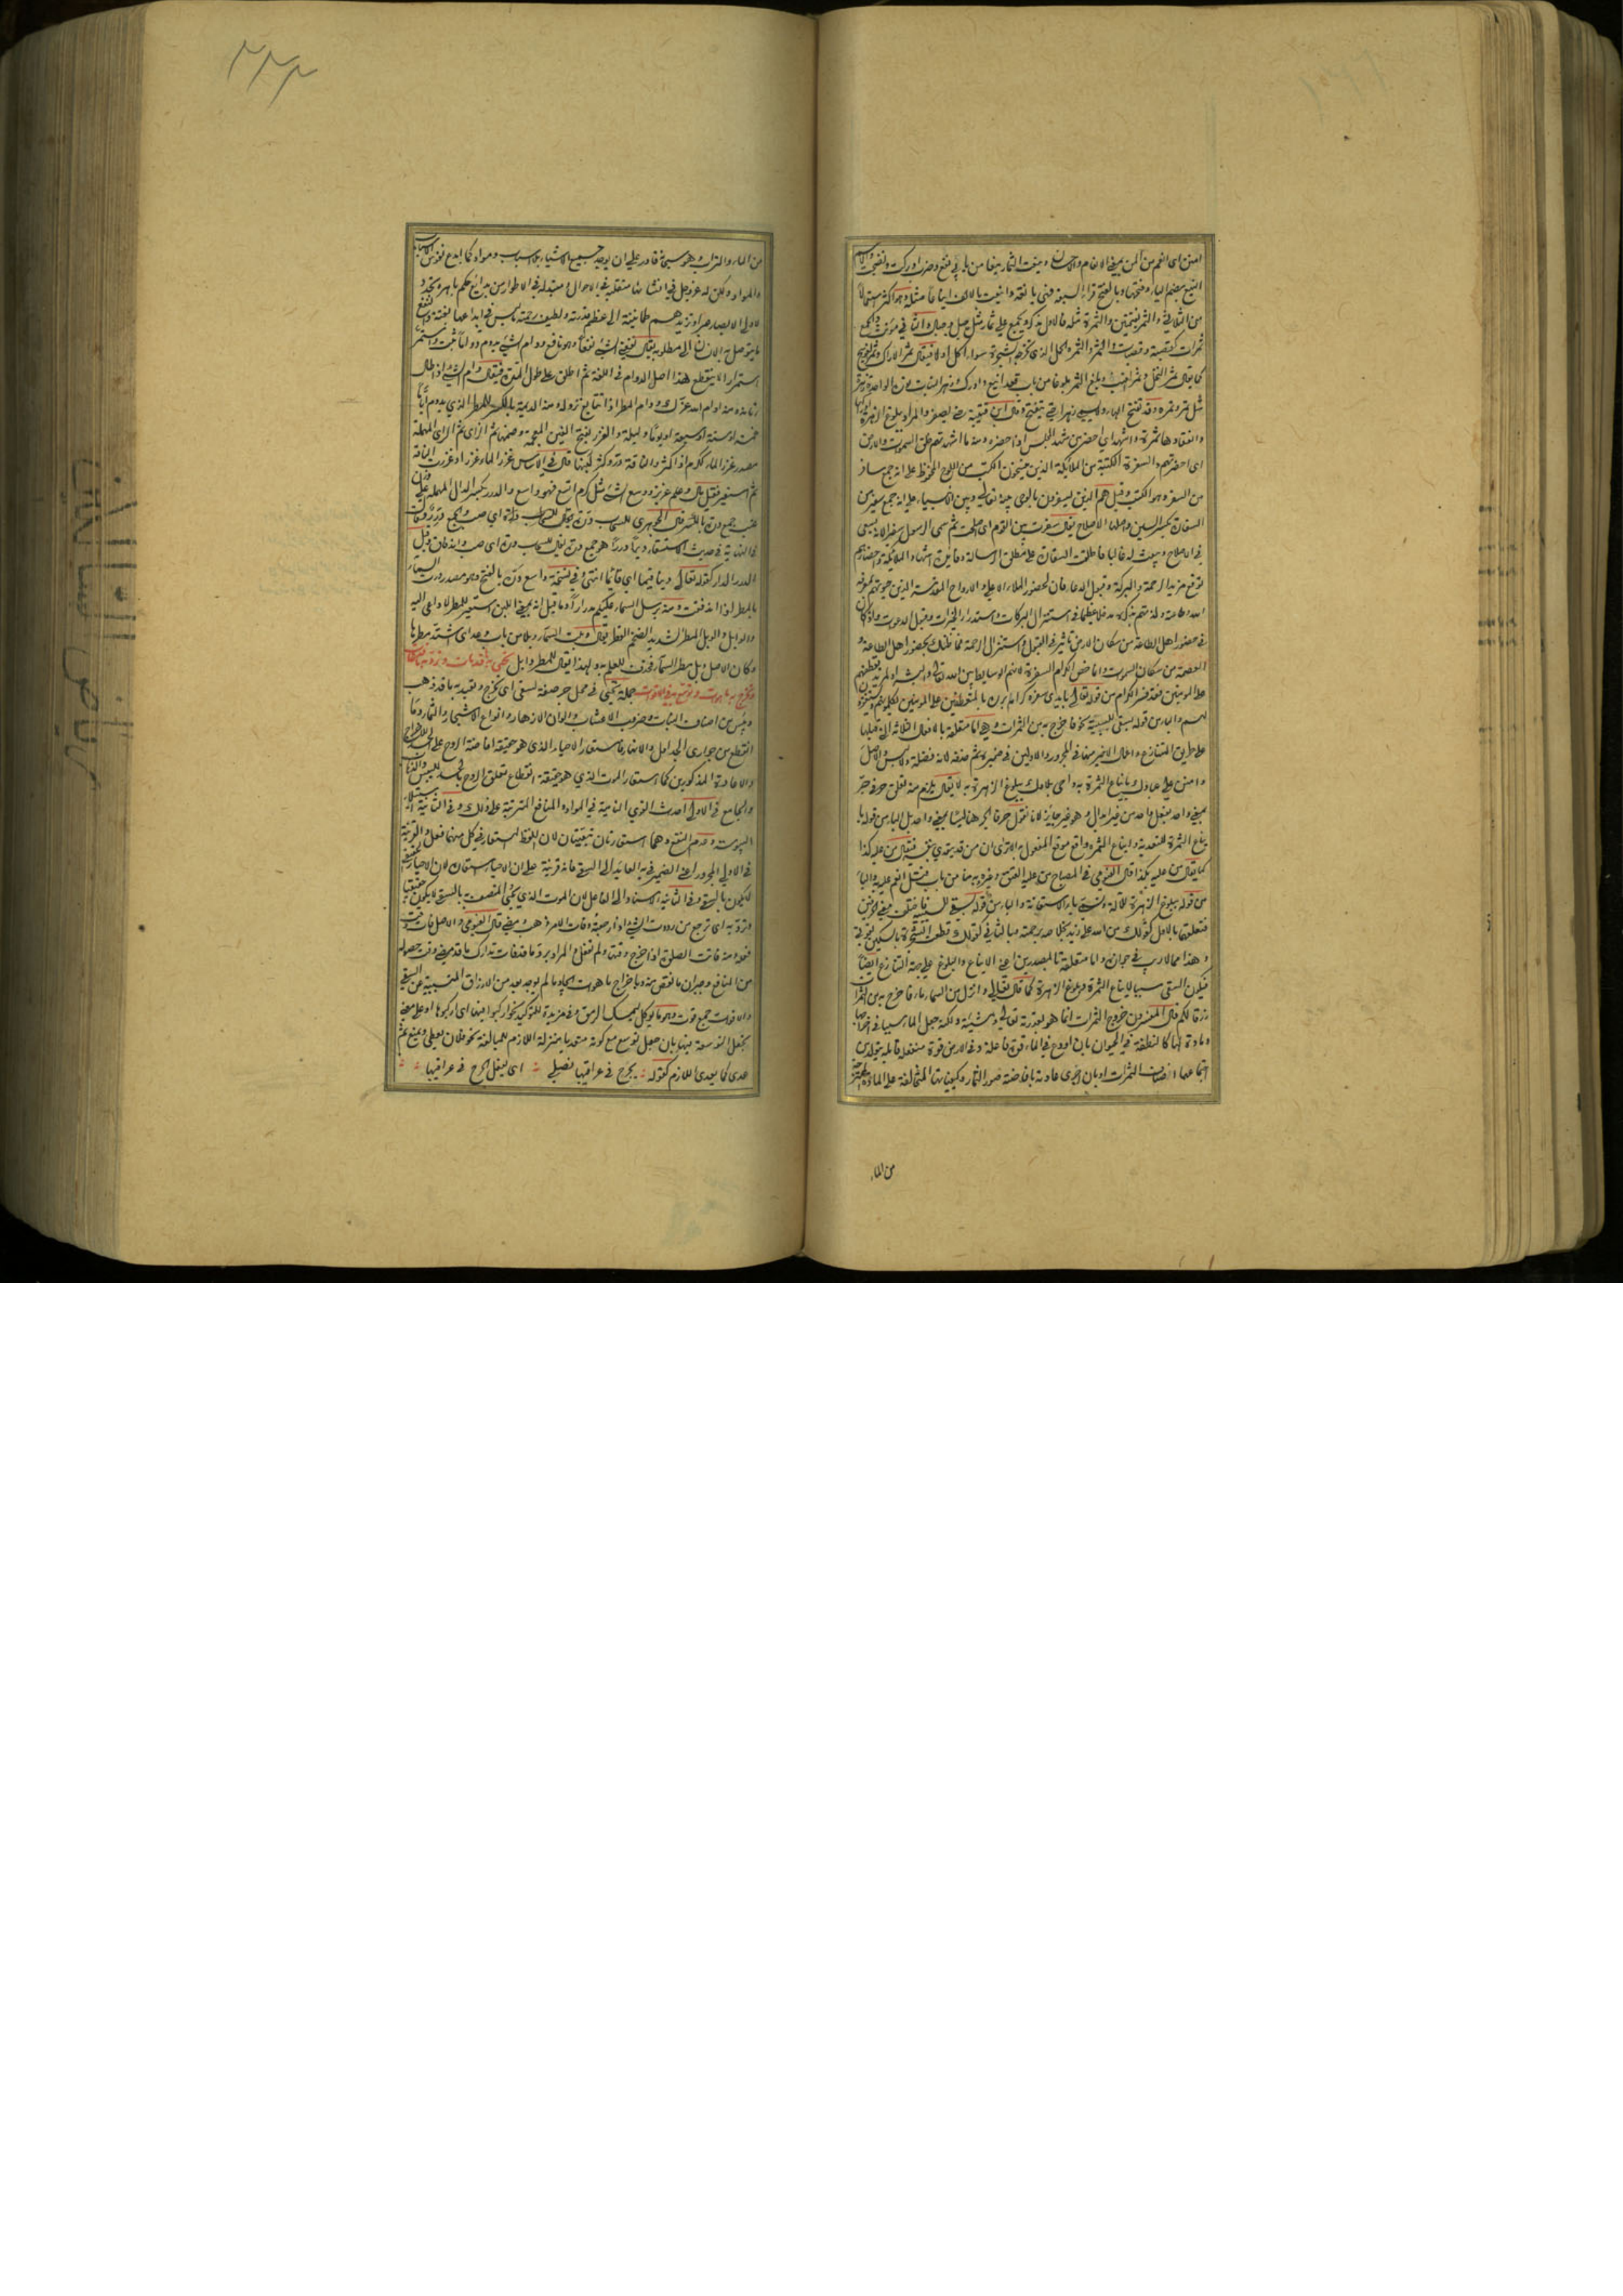 امنن اى انعم من المن بمعنى الانعام والاحسان وينعت الثمار ينعا من بابى نفع وضرب ادركت ونضجت والاسم
الينع بضم الياء وفتحها وبالفتح قرأ السبعة فى ينعه واينعت بالالف ايناعا مثله وهو اكثر استعمالا
من الثلاثى والثمر بفتحتين والثمرة مثله فالاول مذكر ويجمع على ثمار مثل جبل وجبال والثانى مؤنث والجمع
ثمرات كقصبة وقصبات والثمر والثمرة الحمل الذى تخرجه الشجرة سواء اكل او لا فيقال ثمر الاراك وثمر العوسج
كما يقال ثمر النخل وثمر العنب وبلغ الثمر بلوغا من باب قعد اينع وادرك وزهر النبات نوره الواحدة زهرة
مثل تمر وتمرة وقد تفتح الهاء ولا يسمى زهرا حتى يتفتح وقال ابن قتيبة حتى يصفر والمراد ببلوغ الزهرة
وانعقادها ثمرة واشهد اى احضر من شهد المجلس اذا حضره ومنه ما اشهدتهم خلق السموات والارض
اى احضرتهم والسفرة الكتبة من الملائكة الذين ينتسخون الكتب من اللوح المحفوظ على انه جمع سافر
من السفر وهو الكتب وقيل هم الذين يسفرون بالوحى بينه تعالى وبين الانبياء على انه جمع سفير من
السفارة بكسر السين واصلها الاصلاح يقال سفرت بين القوم اى اصلحت ثم سمى الرسول سفيرا لانه يسعى
فى الاصلاح ويبعث له غالبا فاطلقت السفارة على مطلق الرسالة وفايدة اشهاد الملائكة واحضارهم
توقع مزيد الرحمة والبركة وقبول الدعاء فان لحضور الملاء الاعلى والارواح المقدسة الذين حيوتهم بمعرفة
الله وطاعته ولذتهم بذكره مدخلا عظيما فى استنزال البركات واستدرار الخيرات وقبول الدعوات واذا كان
فى حضور اهل الطاعة من سكان الارض تاثير فى القبول واستنزال الرحمة فما ظنك بحضور اهل الطاعة و
العصمة من سكان السموات وانما خص الكرام السفرة لانهم الوسايط بين الله تعالى والبشر او لمزيد تعطفهم
على المومنين فقد فسر الكرام من قوله تعالى بايدى سفرة كرام بررة بالمتعطفين على المومنين يكلمونهم ويستغفرون
لهم والباء من قوله بسقى للسببية نحو فاخرج به من الثمرات وهى اما متعلقة بالافعال الثلاثة التى قبلها
على طريق التنازع واعمال الاخير منها فى المجرور والاولين فى ضميره ثم حذفه لانه فضلة
وامنن على عبادك بايناع الثمرة به واحى بلادك ببلوغ الزهرة به لا يقال يلزم منه تعلق حرفى جر
بمعنى واحد بفعل واحد من غير ابدال وهو غير جايز لانا نقول حرفا الجر هنا ليسا بمعنى واحد بل الباء من قوله
بايناع الثمرة للتعدية وايناع الثمرة واقع موقع المفعول به الا ترى ان من قد يتعدى بنفسه فيقال من عليه كذا
كما يقال من عليه بكذا قال الفيومى فى المصباح من عليه بالعتق وغيره به منا من باب قتل انعم عليه والباء
من قوله ببلوغ الزهرة للآلة وتسمى باء الاستعانة والباء من قوله بسقى للسببية فاختلف معنى الحرفين
فتعلقهما بالفعل كقولك من الله على زيد بخلاصه برحمته وبالثانى كقولك قطعت الشجرة بالسكين
وهذا مما لا ريب فى جوازه واما متعلقة بالمصدرين اعنى الايناع والبلوغ على جهة التنازع ايضا
فيكون السقى سببا لايناع الثمرة وبلوغ الزهرة كما قال تعالى وانزل من السماء ماء فاخرج به من الثمرات
رزقا لكم قال المفسرون خروج الثمرات انما هو بقدرته تعالى ومشيئته ولكنه جعل الماء سببا فى اخراجها
ومادة لها كالنطفة فى الحيوان بان اودع فى الماء قوة فاعلة وفى الارض قوة منفعلة قابلة يتولد من
اجتماعهما اصناف الثمرات او بان اجرى عادته بافاضة صور الثمار وكيفياتها المتخالفة على المادة الممتزجة
من الماء
٢٣٢
من الماء والتراب وهو سبحانه قادر على ان يوجد جميع الاشياء بلا اسباب ومواد كما ابدع نفوس الاسباب
والمواد ولكن له عز وجل فى انشائها متقلبة فى الاحوال ومتبدلة فى الاطوار من بدايع حكم باهرة تجدد
لاولى الابصار عبرا وتزيدهم طمانينة الى عظيم قدرته ولطيف رحمته ما ليس فى ابداعها بغتة والنفع
ما يتوصل به الانسان الى مطلوبه يقال نفعنى الشئ نفعا وهو نافع ودوام الشئ يدوم دواما ثبت واستمر
استمرارا لا ينقطع هذا اصل الدوام فى اللغة ثم اطلق على طول المدة فيقال دام الشئ اذا طال
زمانه ومنه ادام الله عزك ودام المطر اذا تتابع نزوله ومنه الديمة بالكسر للمطر الذى يدوم اياما
خمسة او ستة او سبعة او يوما وليلة والغزر بفتح الغين المعجمة وضمها ثم الزاى ثم الراى المهملة
مصدر غزر الماء ككرم اذا كثر والناقة در وكثر لبنها قال فى الاساس غزر الماء غزرا وغزرت الناقة
ثم استعير فقيل مال وعلم غزير ووسع الشئ مثل كرم اتسع فهو واسع والدرر بكسر الدال المهملة على وزن
عنب جمع درة بالكسر قال الجوهرى للسحاب درة ويقال للسحاب درة اى صب والجمع درر وقال
فى النهاية فى حديث الاستسقاء ديما دررا هو جمع درة يقال للسحاب درة اى صب واندفاق وقيل
الدرر الدار كقوله تعالى دينا قيما اى قائما انتهى وفى نسخة واسع درك بالفتح وهو مصدر درت السماء
بالمطر اذا اندفقت ومنه يرسل السماء عليكم مدرارا وما قيل انه بمعنى اللبن استعير للمطر لا داعى اليه
والوابل والوبل المطر الشديد الضخم القطر يقال وبلت السماء وبلا من باب وعد اى اشتد مطرها
وكان الاصل وبل مطر السماء فحذف للعلم به ولهذا يقال للمطر وابل تحيى به ما قد مات وترد به ما قد فات
وتخرج به ما هو ات وتوسع به فى الاقوات جملة تحيى فى محل جر صفة لسقى اى تخرج وتعيد به ما قد ذهب
ويبس من اصناف النبات وضروب الاعشاب والوان الازهار وانواع الاشجار والثمار وما
انقطع من جوارى الجداول والانهار فاستعار الاحياء الذى هو حقيقة افاضة الروح على الجسد للاخراج
والاعادة المذكورين كما استعار الموت الذى هو حقيقة انقطاع تعلق الروح بالجسد لليبس والذهاب
والجامع فى الاول احداث القوى النامية فى المواد والمنافع المترتبة على ذلك وفى الثانية استيلاء
اليبوسة وعدم النفع وهما استعارتان تبعيتان لان اللفظ المستعار فى كل منهما فعل والقرينة
فى الاولى المجرور اعنى الضمير فى به العايد الى السقى فانه قرينة على ان الاحياء استعارة لان الاحياء الحقيقى
لا يكون بالسقى وفى الثانية الاسناد الى الفاعل لان الموت الذى يحيى المتصف به بالسقى لا يكون حقيقيا
وترد به اى ترجع من رددت الشئ اذا ارجعته وفات الامر ذهب ومضى قال الفيومى والاصل فات وقت
فعله ومنه فاتت الصلوة اذا خرج وقتها ولم تفعل والمراد برد ما قد فات تدارك ما قد مضى وقت حصوله
من المنافع وجبران ما نقص منه وباخراج ما هو ات ايجاد ما لم يوجد بعد من الارزاق المتسببة عن السقى
والاقوات جمع قوت وهو ما يوكل ليمسك الرمق وفى مزيدة للتوكيد نحو اركبوا فيها اى اركبوها او على معنى
تجعل التوسعة فيها بان جعل توسع مع كونه متعديا بمنزلة اللازم للمبالغة نحو فلان يعطى ويمنع ثم
عدى كما يعدى اللازم كقوله يجرح فى عراقيبها نصلى اى يفعل الجرح فى عراقيبها